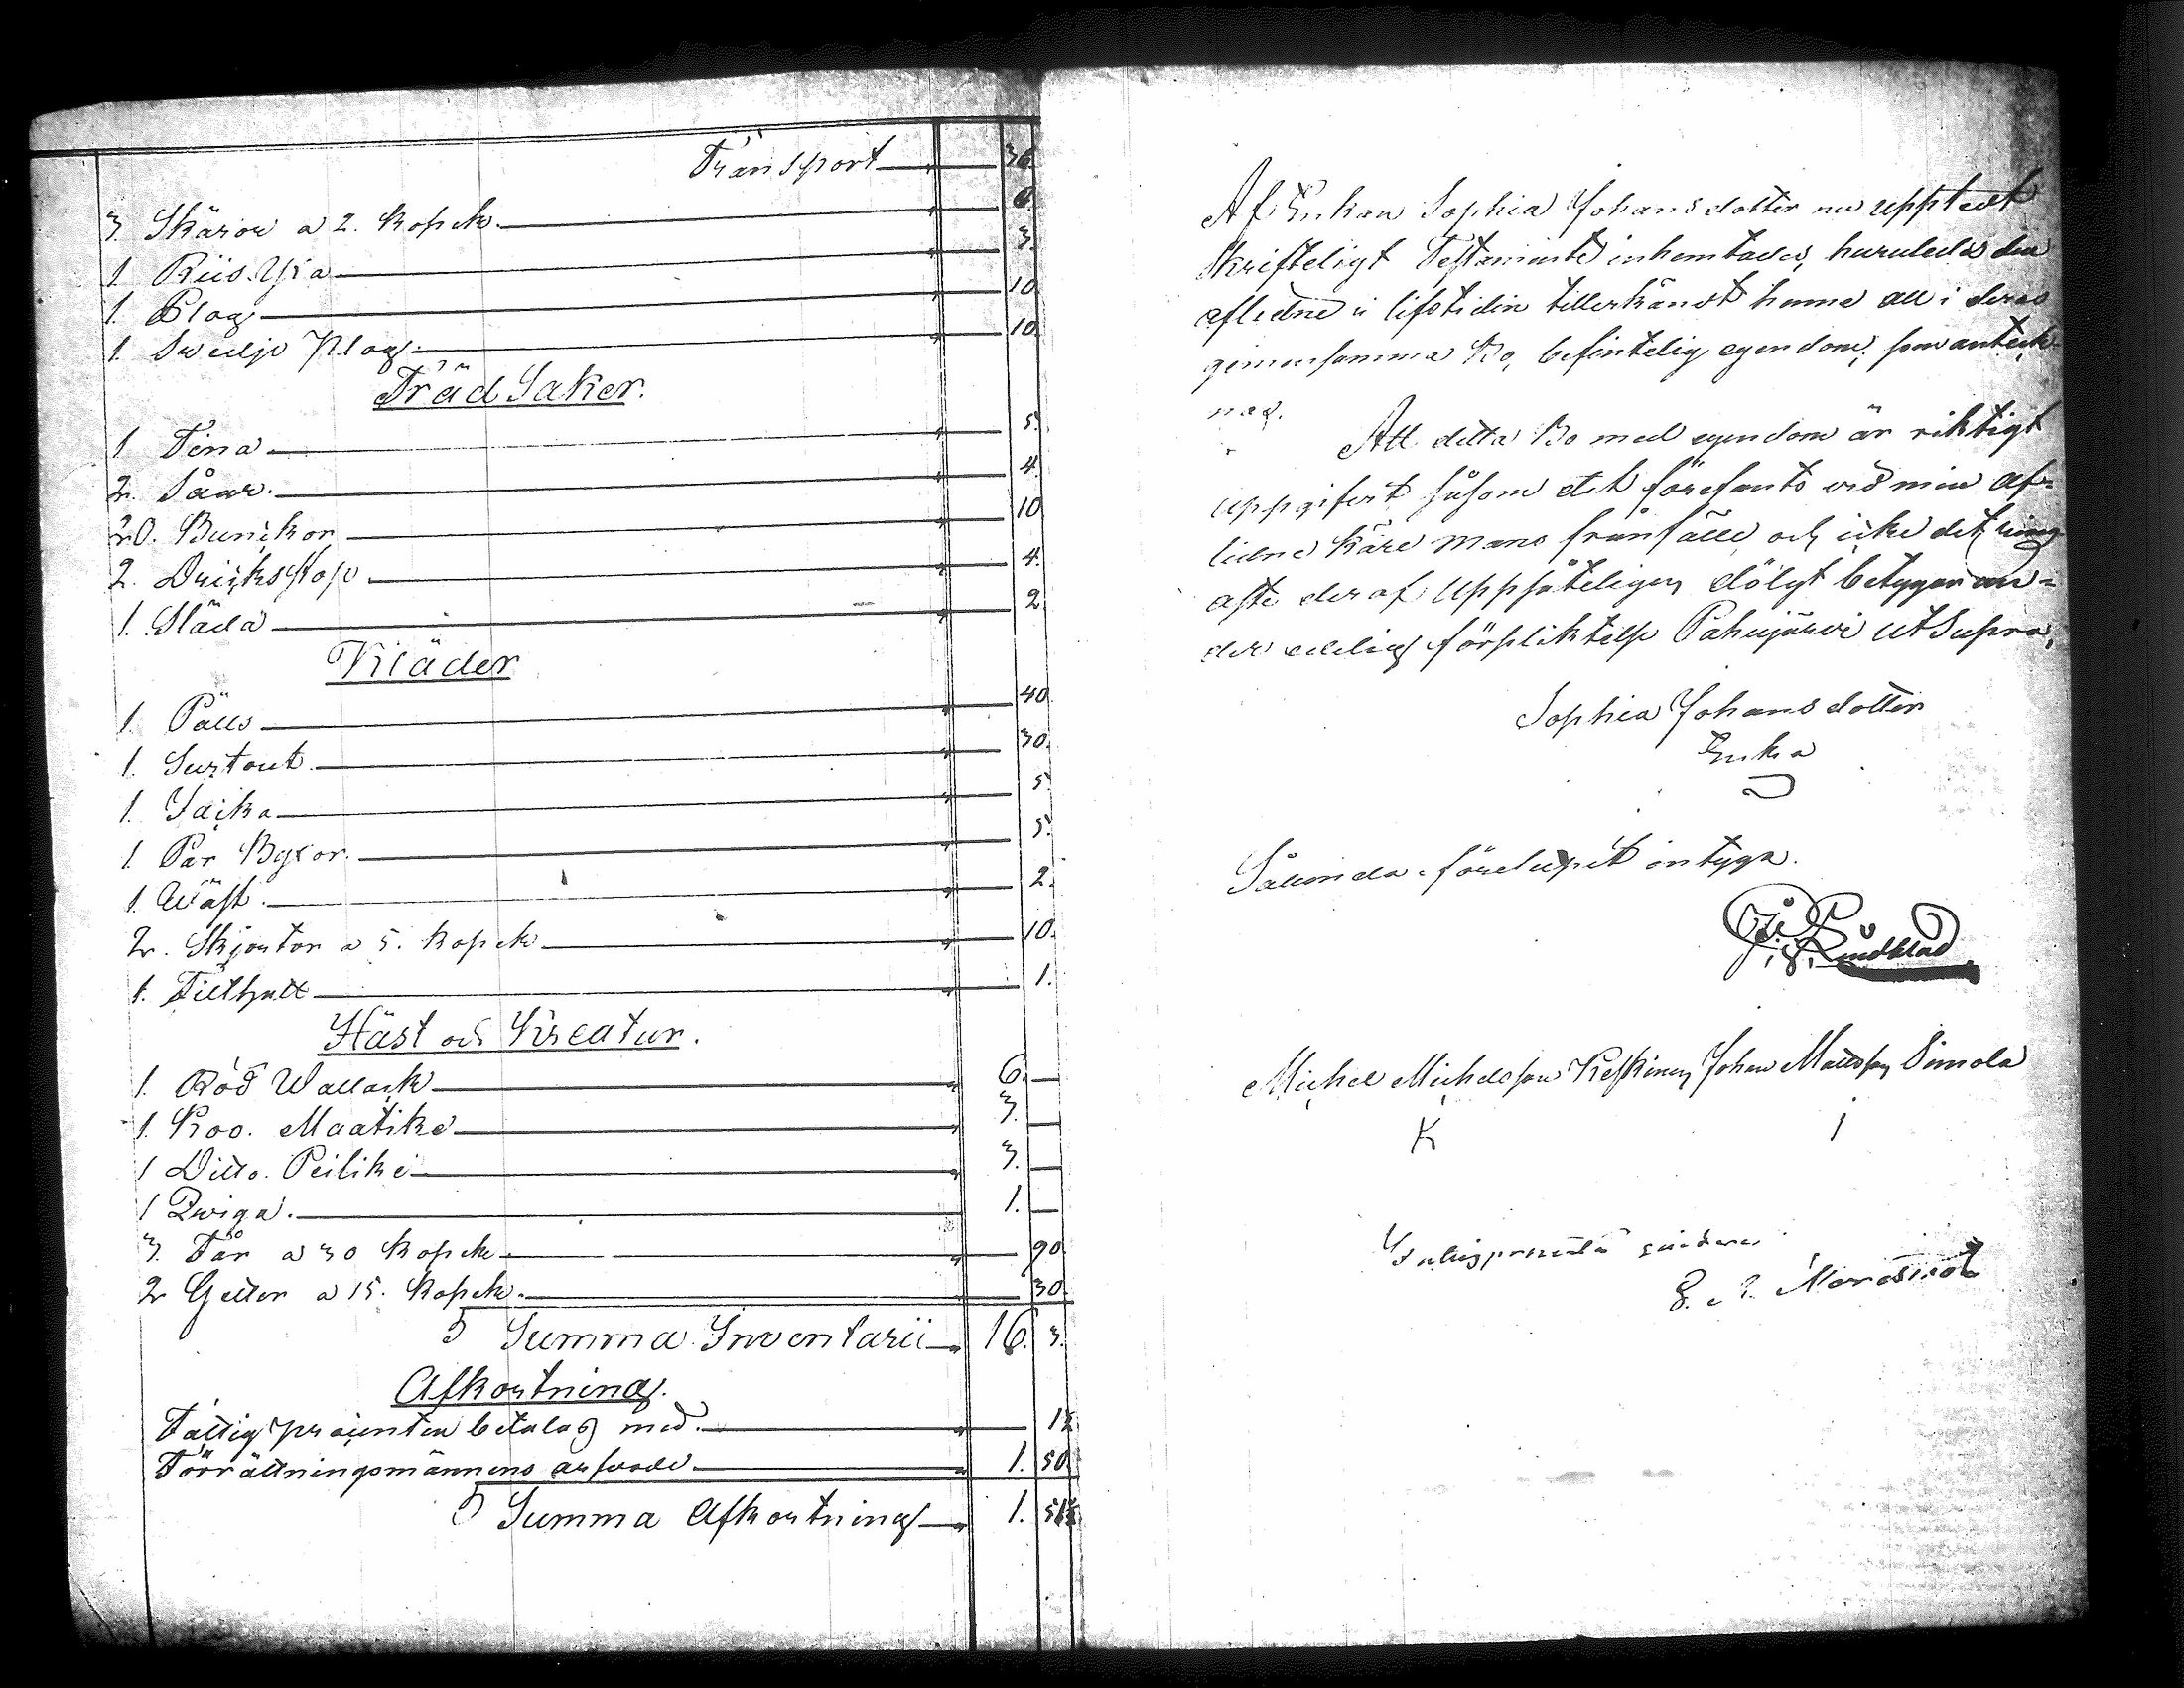 Transport — 36.
3. Skäror a 2. Kopek — 6.
1 Riis Yxa — 3.
1. Plog — 10
1. Swedje Plog — 10.
Träd Saker.
1 Tina — 5.
2. Såar. — 4.
20. Bunckor — 10
2. Dricksstop — 4.
1. Släda — 2
Kläder
1. Päls — 40.
1. Surtout — 30.
1. Jacka — 5.
1. Par Byxor. — 5.
1. Wäst. — 2.
2. Skjortor a 5. Kopek — 10.
1. Filthatt — 1.
Häst och Kreatur.
1. Röd Wallack — 6. —
1. Koo. Maatike — 3. —
1 Ditto. Peiliki — 3. —
1 Qwiga. — 1. —
3. Får a 30 Kopek — 90
2 Getter a 15. Kopek. — 30.
Summa Inventarii — 16. 3.
Afkortning.
Fattig procenten betalas med. — 1½
Förrättningsmännens arfvode — 1. 50.
Summa Afkortning — 1. 51½
Af Enkan Sophia Johansdotter nu upptedt
skrifteligt Testamente inhemtades, huruledes den
aflidne i lifstiden tillerkändt henne all i deras
gemensamma Bo, befintelig egendom, som anteck-
nas.
Att detta Bo med egendom är riktigt
uppgifvit såsom det förefants vid min af-
lidne Käre mans frånfälle och icke det ring
aste deraf uppsåteligen dölgt betygar un-
der edelig förpliktelse Pahajärvi ut Supra,
Sophia Johansdotter
Enka
Sålunda förelupit intyga.
Lindblad
Michel Michelsson Keskinen Johan Mattsson Simola
K I